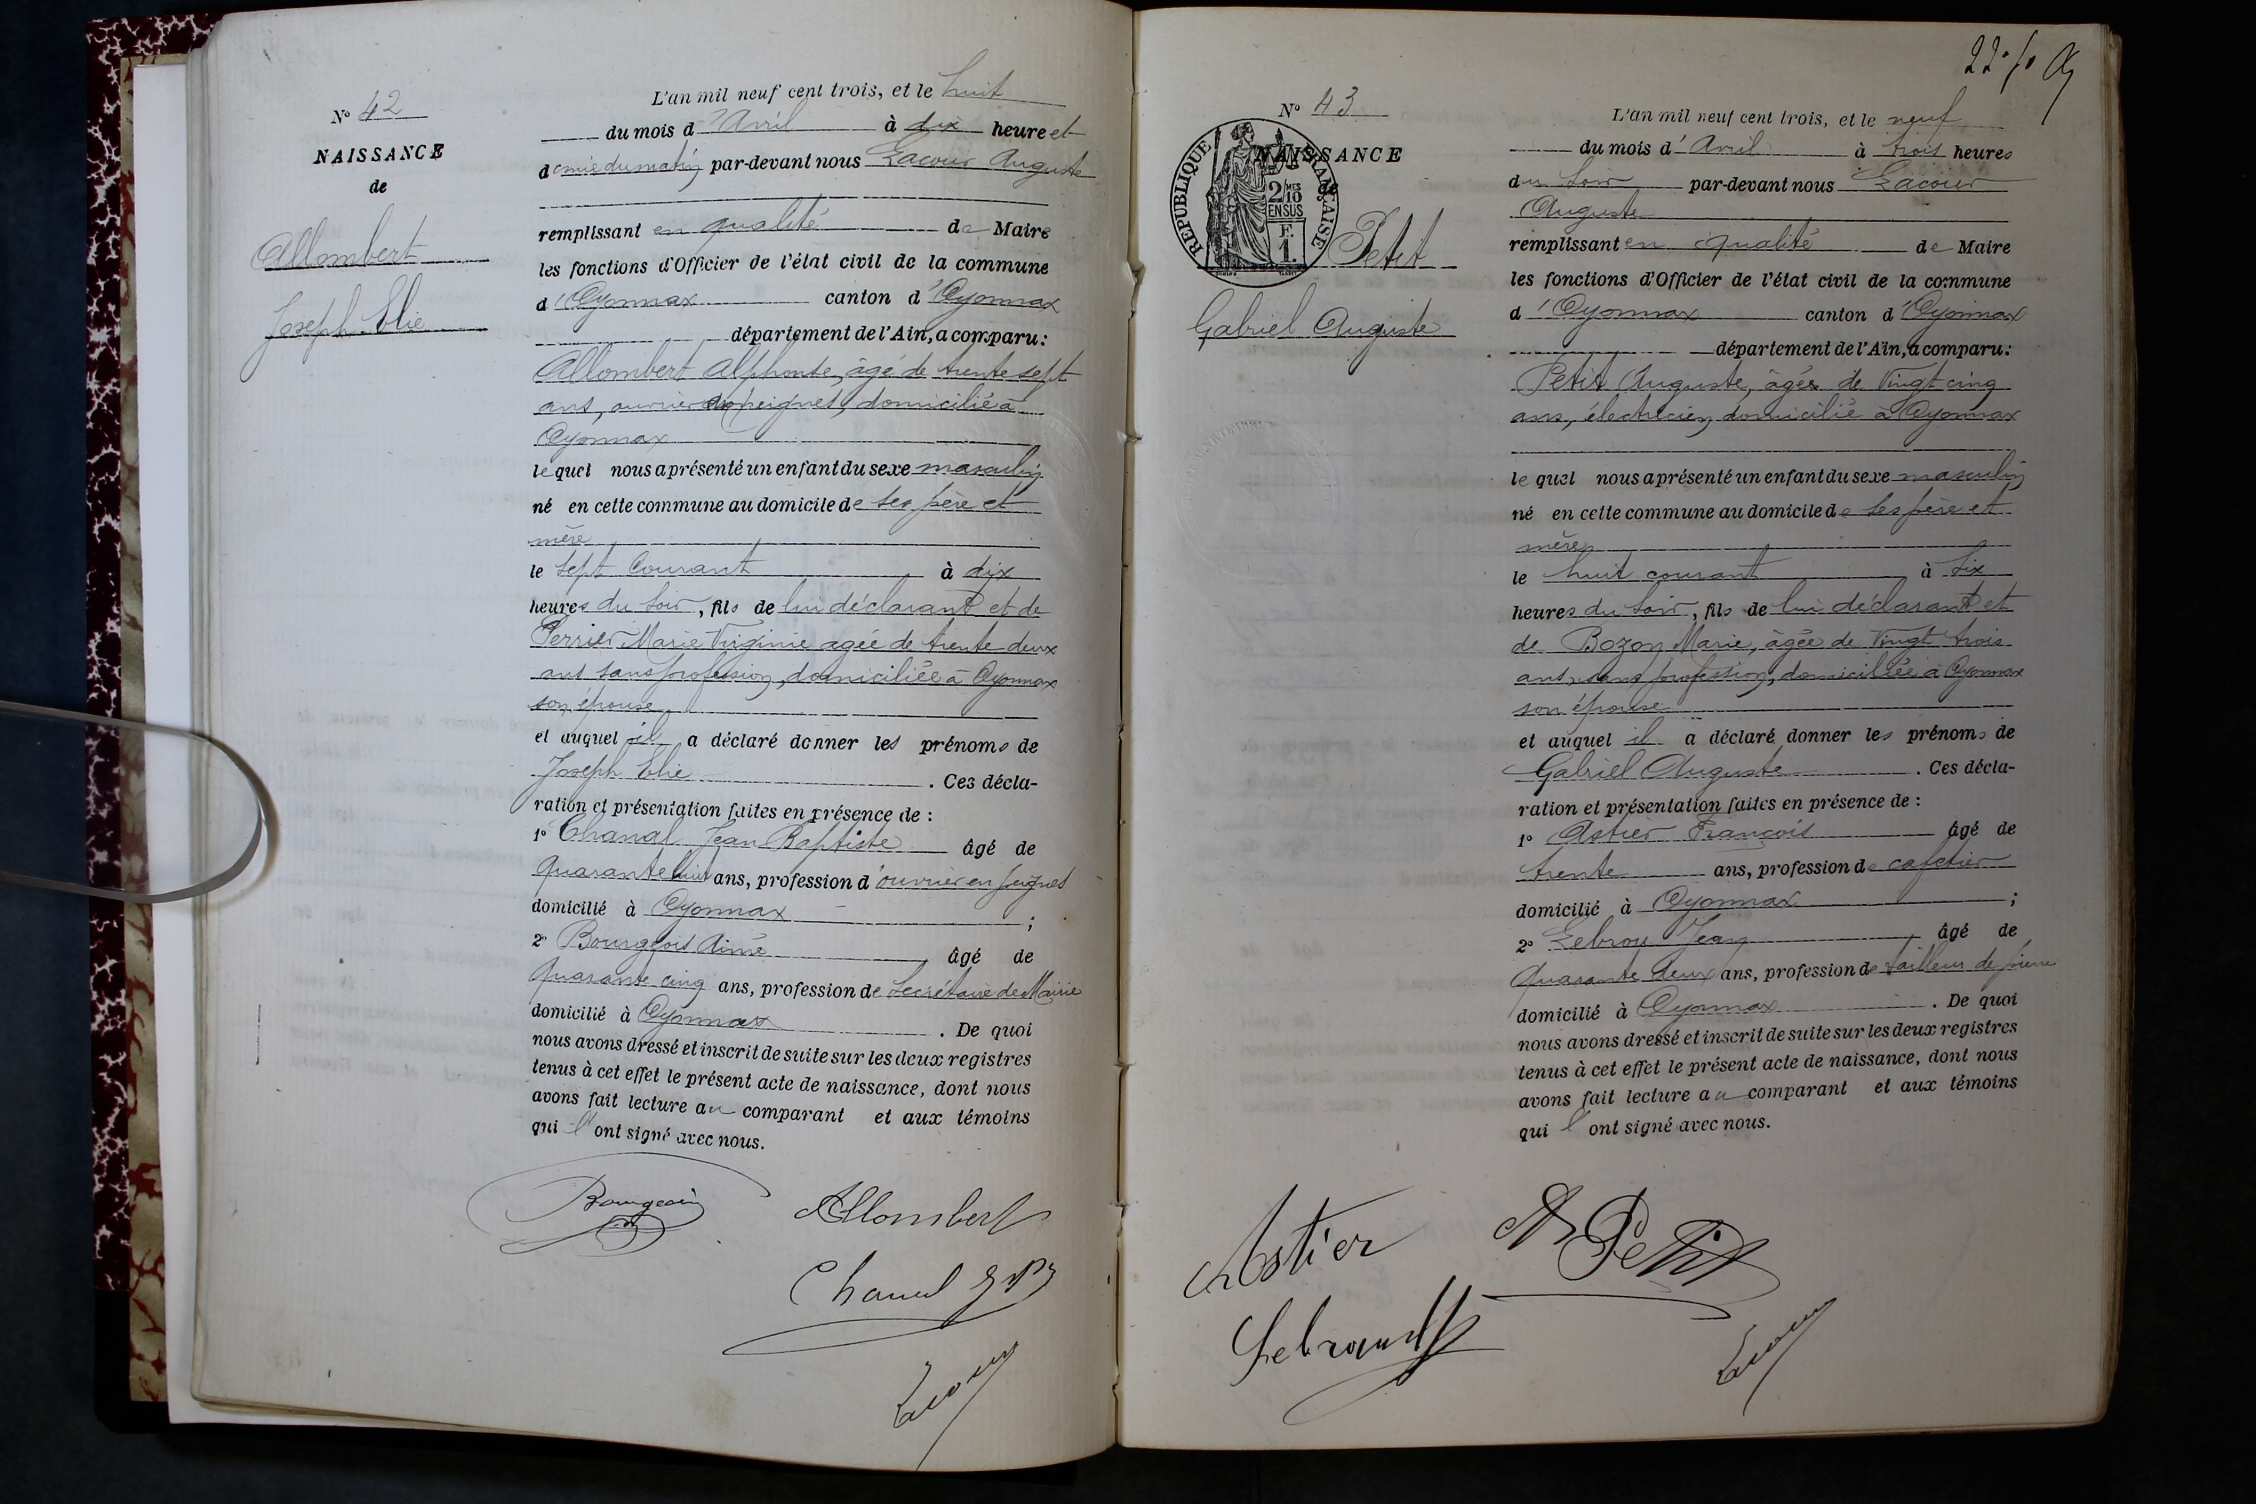 N° 42
NAISSANCE
de
Allombert
Joseph Elie
L'an mil neuf cent trois, et le huit
du mois d'Avril à dix heure et
demie du matin par-devant nous Lacour Auguste
remplissant en qualité de Maire
les fonctions d'Officier de l'état civil de la commune
d'Oyonnax canton d'Oyonnax
département de l'Ain, a comparu:
Allombert Alphonse, âgé de trente sept
ans, ouvrier en peignes, domicilié à
Oyonnax
lequel nous a présenté un enfant du sexe masculin
né en cette commune au domicile de ses père et
mère
le sept courant à dix
heures du soir, fils de lui déclarant et de
Perrier Marie Virginie agée de trente deux
ans sans profession, domiciliée à Oyonnax
son épouse
et auquel il a déclaré donner les prénoms de
Joseph Elie. Ces décla-
ration et présentation faites en présence de:
1° Chanal Jean Baptiste âgé de
quarante huit ans, profession d'ouvrier en peignes
domicilié à Oyonnax;
2° Bourgeois Aimé âgé de
quarante cinq ans, profession de secrétaire de Mairie
domicilié à Oyonnax. De quoi
nous avons dressé et inscrit de suite sur les deux registres
tenus à cet effet le présent acte de naissance, dont nous
avons fait lecture au comparant et aux témoins
qui l'ont signé avec nous.
Bourgeois Allombert
Chanal J B
Lacour
22 f°
N° 43
NAISSANCE
de
REPUBLIQUE FRANÇAISE
2/10MES
EN SUS
F.
1.
Petit
Gabriel Auguste
L'an mil neuf cent trois, et le neuf
du mois d'Avril à trois heures
du soir par-devant nous Lacour
Auguste
remplissant en qualité de Maire
les fonctions d'Officier de l'état civil de la commune
d'Oyonnax canton d'Oyonnax
département de l'Ain, a comparu:
Petit Auguste, âgé de vingt cinq
ans, électricien, domicilié à Oyonnax
lequel nous a présenté un enfant du sexe masculin
né en cette commune au domicile de ses père et
mère
le huit courant à six
heures du soir, fils de lui déclarant et
de Bozon Marie, âgée de vingt trois
ans, sans profession, domiciliée à Oyonnax
son épouse
et auquel il a déclaré donner les prénoms de
Gabriel Auguste. Ces décla-
ration et présentation faites en présence de:
1° Astier François âgé de
trente ans, profession de cafetier
domicilié à Oyonnax;
2° Lebrou Jean âgé de
quarante deux ans, profession de tailleur de pierre
domicilié à Oyonnax. De quoi
nous avons dressé et inscrit de suite sur les deux registres
tenus à cet effet le présent acte de naissance, dont nous
avons fait lecture au comparant et aux témoins
qui l'ont signé avec nous.
Astier A Petit
Lacour